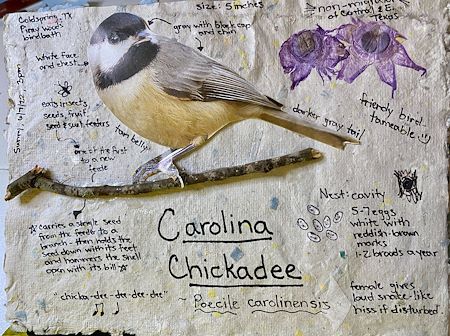 Coldspring, TX
Piney Woods
birdbath
Size: 5 inches
gray with black cap
and chin
non-migratory
of Central & E.
Texas
White face
and chest
Sunny, 6/7/22, 2pm
eats insects,
seeds, fruit,
seed & suet feeders
"tan belly"
one of the first
to a new
feeder
darker gray tail
friendly bird-
tameable
carries a single seed
from the feeder to a
branch - then holds the
seed down with its feet
and hammers the shell
open with its bill
"chicka-dee-dee-dee-dee"
Carolina
Chickadee
~ Poecile carolinensis
Nest: cavity
5-7 eggs
white with
reddish-brown
marks
1-2 broods a year
female gives
loud snake-like
hiss if disturbed.